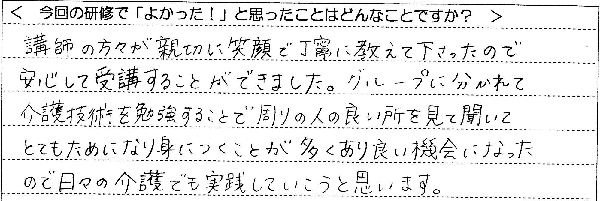 ＜ 今回の研修で「よかった！」と思ったことはどんなことですか？ ＞
講師の方々が親切に笑顔で丁寧に教えて下さったので
安心して受講することができました。グループに分かれて
介護技術を勉強することで周りの人の良い所を見て聞いて
とてもためになり身につくことが多くあり良い機会になった
ので日々の介護でも実践していこうと思います。